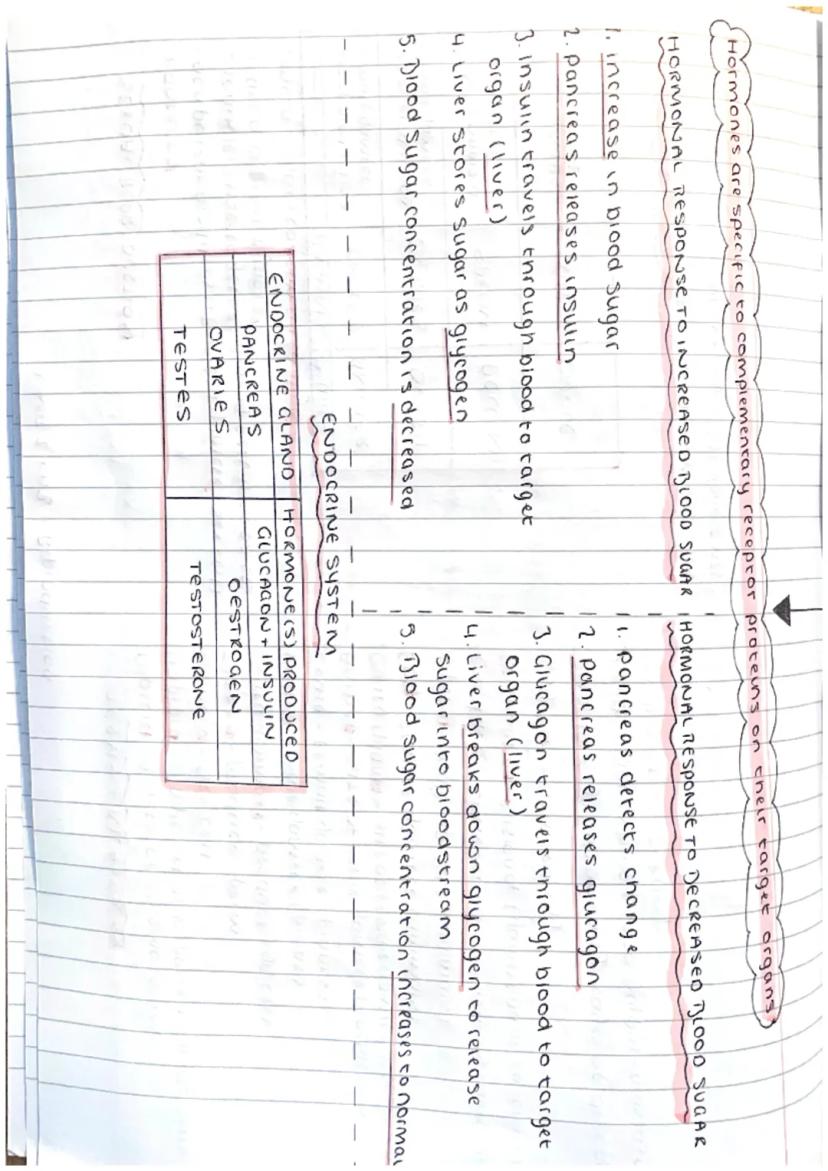 Hormones are specific to complementary receptor proteins on their target organs
HORMONAL RESPONSE TO INCREASED BLOOD SUGAR
1. increase in blood sugar
2. pancreas releases insulin
3. Insulin travels through blood to target
organ (liver)
4. Liver stores sugar as glycogen
5. Blood sugar concentration is decreased
HORMONAL RESPONSE TO DECREASED BLOOD SUGAR
1. pancreas detects change
2. pancreas releases glucagon
3. Glucagon travels through blood to target
organ (liver)
4. Liver breaks down glycogen to release
sugar into bloodstream
5. Blood sugar concentration increases to normal
ENDOCRINE SYSTEM
ENDOCRINE GLAND HORMONE(S) PRODUCED
PANCREAS GLUCAGON + INSULIN
OVARIES OESTROGEN
TESTES TESTOSTERONE